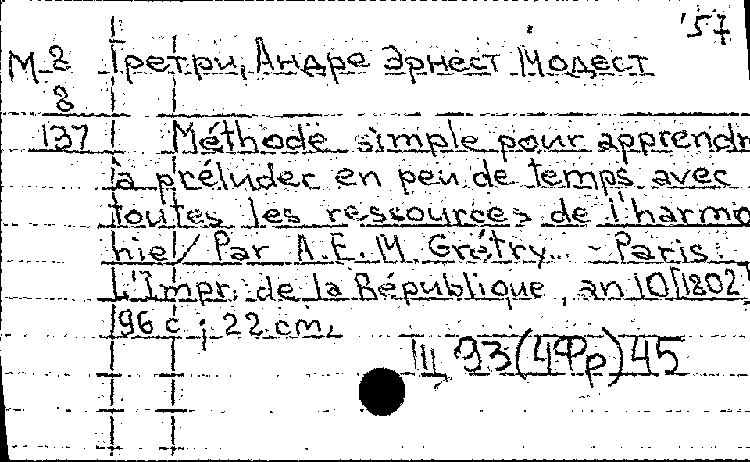 '57
М 2 Гретри, Андре Эрнест Модест
8
137 Méthode simple pour apprendr
à préluder en peu de temps avec
toutes les ressources de l'harmo
nie / Par A. E. M. Grétry. - Paris:
L'Impr. de la République, an 10[1802]
96 с; 22 cm.
Ш 93(4Фр)45